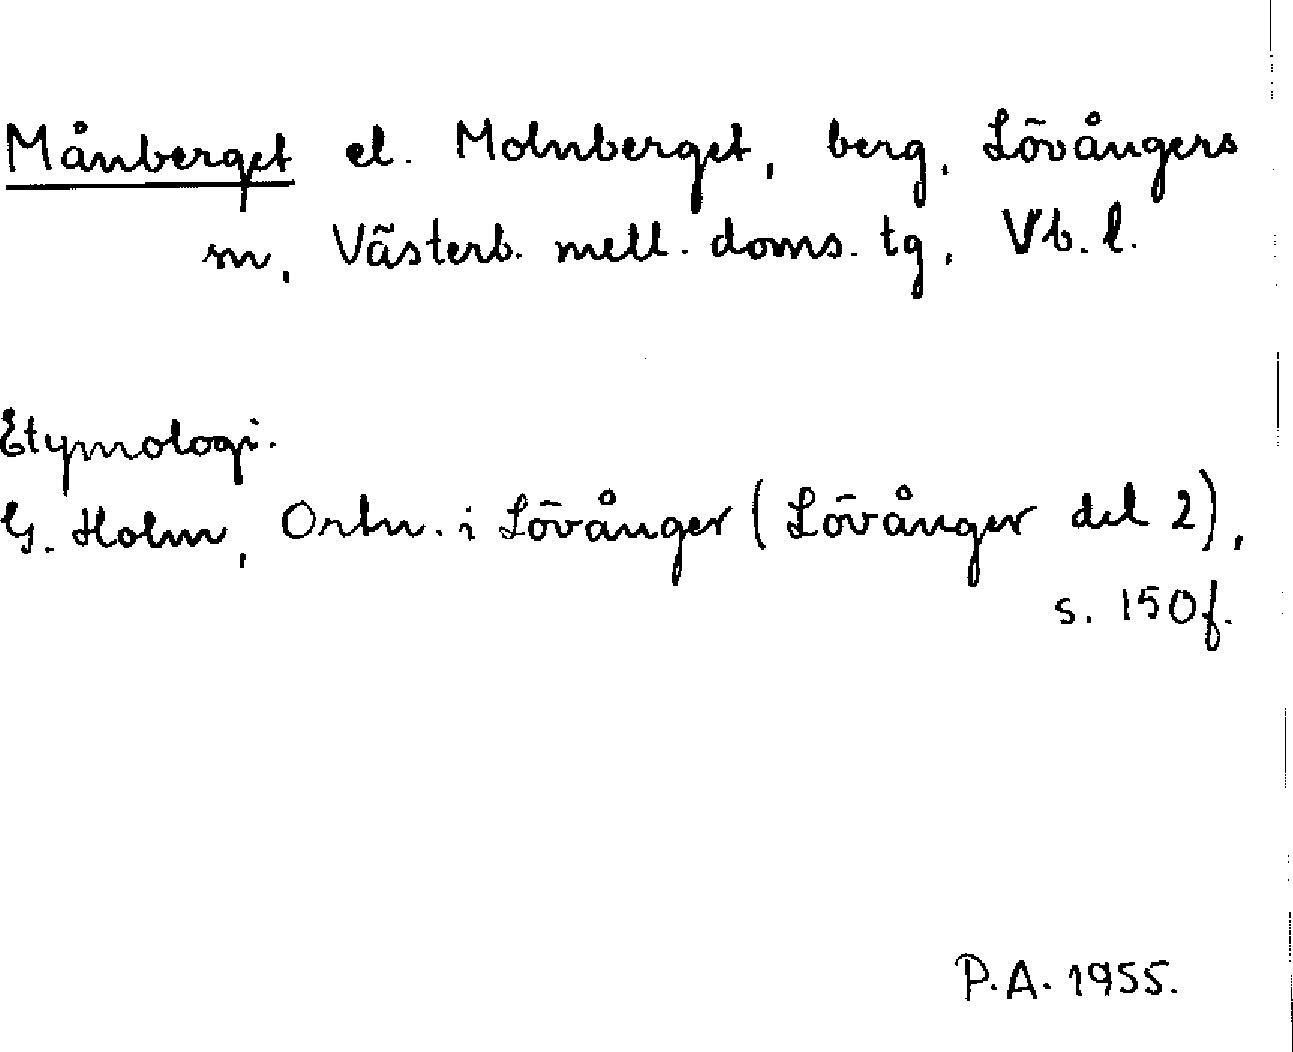 Månberget el. Molnberget, berg, Lövångers
sn, Västerb. mell. doms. tg, Vb. l.
Etymologi.
G. Holm, Ortn. i Lövånger (Lövånger del 2),
s. 150f.
P.A. 1955.